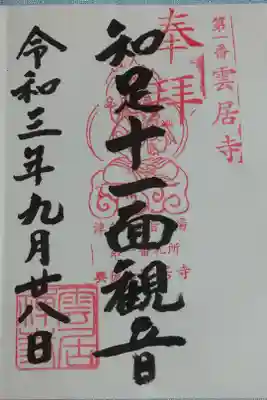 第一番 雲居寺
奉拝
知足十一面観音
令和三年九月廿八日